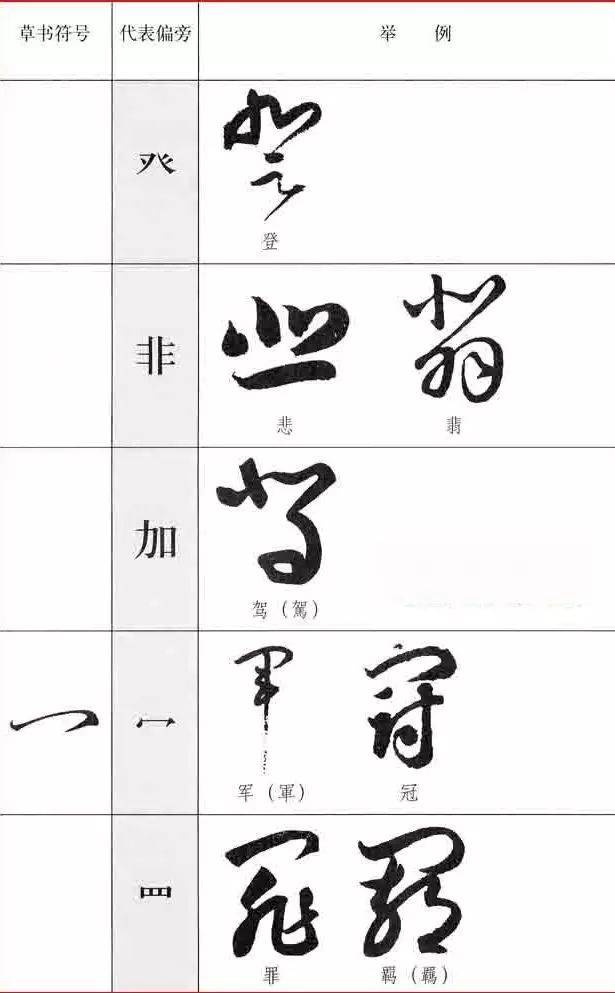 草书符号 代表偏旁 举例
癶
登
非
悲 翡
加
驾（駕）
冖
军（軍） 冠
罒
罪 羁（羈）